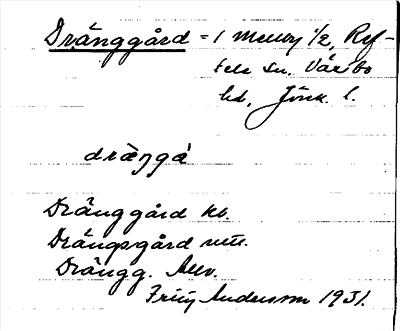 Dränggård = 1 Mellby 1/2, Ref-
tele sn. Västbo
hd, Jönk. l.
dräŋgå
Dränggård kb.
Drängsgård mtl.
Drängg. Allv.
Fritz Andersson 1931.